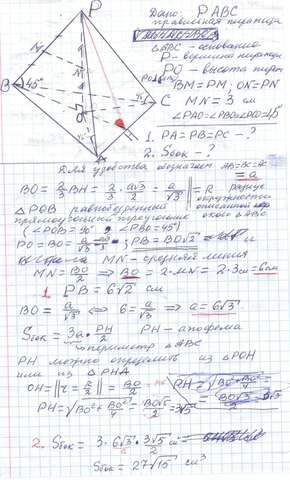 P
B
45°
C
M
N
O
H
A
Дано: PABC
правильная пирамида
△ABC - основание
P - вершина пирамиды
PO - высота пирам
BM = PM; ON = PN
MN = 3 см
∠PAO = ∠PBO = ∠PCO = 45°
1. PA = PB = PC - ?
2. Sбок - ?
Для удобства обозначим AB = BC = AC
= a
BO = 2/3 BH = 2/3 · a√3/2 = a/√3 = R радиус
окружности
описанной
около △ABC
△POB равнобедренный
прямоугольный треугольник
(∠POB = 90°, ∠PBO = 45°)
PO = BO = a/√3; PB = BO√2
MN - средняя линия
MN = BO/2 ⇒ BO = 2·MN = 2·3 см = 6 см
1. PB = 6√2 см
BO = a/√3 ⇔ 6 = a/√3 ⇒ a = 6√3
Sбок = 3a · PH/2 PH - апофема
периметр △ABC
PH можно определить из △POH
или из △PHA
OH = r = R/2 = BO/2
PH = √(BO² + BO²/4) = BO√5/2 = 3√5
2. Sбок = 3 · 6√3 · 3√5/2 см²
Sбок = 27√15 см³